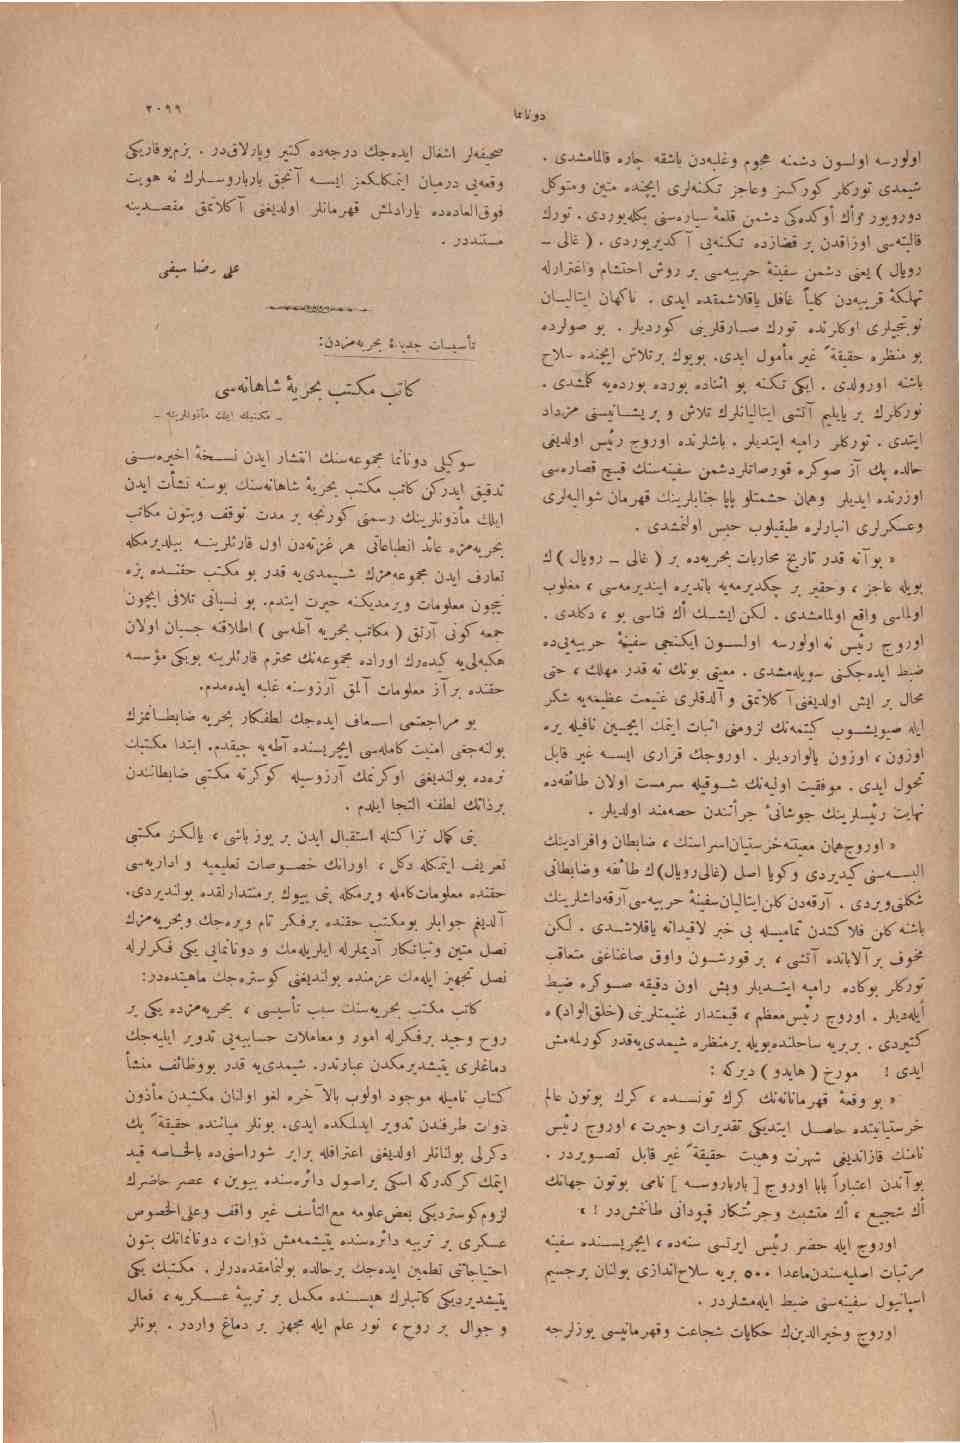 دوناتما
٢٠٩٩
اولورسه اولسون دشمنه هجوم وغلبه‌دن باشقه چاره قالمامشدی .
شیمدی تورکلر کورکسز وعاجز تکنه‌لری ایچنده متین ومتوکل
دورویور اوکده‌کی دشمن قلعهٔ سیاره‌سنی بکله‌یوردی . تورك
قالیته‌سی اوزاقدن بر قضازده تکنه‌یی آکدیریوردی . ( غالی –
رویال ) یعنی دشمن سفینهٔ حربیه‌سی بر روش احتشام واغترارله
تهلکهٔ قریبه‌دن کلیاً غافل یاقلاشمقده ایدی . ناکهان ایتالیان
نوبتجیلری اوکلرنده تورك صارقلرینی کوردیلر . بو صولرده
بو منظره حقیقةً غیر مأمول ایدی. بویوك برتلاش ایچنده سلاح
باشنه اورولدی . ایکی تکنه بو اثناده بورده بورده‌یه کلمشدی .
تورکلرك بر یایلیم آتشی ایتالیانلرك تلاش و پریشانیسنی مزداد
ایتدی . تورکلر رامپه ایتدیلر . باشلرنده اوروج رئیس اولدیغی
حالده پك آز صوکره قورصانلردشمن سفینه‌سنك قیچ قصاره‌سی
اوزرنده ایدیلر وهمان حشمتلو پاپا جنابلرینك قهرمان شوالیه‌لری
وعسکرلری انبارلره طیقیلوب حبس اولنمشدی .
« بوآنه قدر تاریخ محاربات بحریه‌ده بر ( غالی – رویال ) ك
بویله عاجز ، وحقیر بر چکدیرمه‌یه باندیره ایندیرمه‌سی ، مغلوب
اولماسی واقع اولمامشدی . لکن ایشك اك فناسی بو ، دکلدی .
اوروج رئیس نه اولورسه اولسون ایکنجی سفینهٔ حربیه‌یی‌ده
ضبط ایده‌جکنی سویله‌مشدی . معیتی بونك نه قدر مهلك ، حتی
محال بر ایش اولدیغنی آکلاتمق و آلدقلری غنیمت عظیمه‌یه شکر
ایله صیویشوب کیتمه‌نك لزومنی اثبات ایتمك ایچین نافیله یره
اوزون ، اوزون یالواردیلر . اوروجك قراری ایسه غیر قابل
تحول ایدی . موفقیت اولیه‌نك شوقیله سرمست اولان طائفه‌ده
نهایت رئیسلرینك جوشانیٔ جرأتندن حصه‌مند اولدیلر .
« اوروج‌همان معیتنه‌خرستیان‌اسراستك ، ضابطان وافرادینك
البسه‌سنی کیدیردی وکویا اصل (غالی‌رویال)ك طائفه وضابطانی
شکلنی‌ویردی . آرقه‌دن‌کلن‌ایتالیان‌سفینهٔ حربیه‌سی‌آرقه‌داشلرینك
باشنه‌کلن فلاکتدن تمامیله بی خبر لاقیدانه یاقلاشدی . لکن
مخوف برآلابانده آتشی ، بر قورشون واوق صاغناغنی متعاقب
تورکلر بوکاده رامپه ایتدیلر وبش اون دقیقه صوکره ضبط
ایله‌دیلر . اوروج رئیس‌معظم ، قیمتدار غنیمتلرینی (خلق‌الواد) ه
کتیردی . بربریه ساحلنده‌بویله برمنظره شیمدی‌یه‌قدر کورلمه‌مش
ایدی ! مورخ ( هایدو ) دیرکه :
« بو وقعهٔ قهرمانانه‌نك کرك تونسده ، کرك بوتون عالم
خرستیانیتده حاصل ایتدیکی تقدیرات وحیرت ، اوروج رئیس
نامنك قازاندیغی شهرت وهیبت حقیقةً غیر قابل تصویردر .
بوآندن اعتباراً بابا اوروج [ بارباروسه ] نامی بوتون جهانك
اك شجیع ، اك متشبث وجرئتکار قپودانی طانمش‌در ! »
اوروج ایله حضر رئیس ایرتسی سنه‌ده ، ایچریسنده سفینه
مرتبات اصلیه‌سندن‌ماعدا ٥٠٠ بریه سلاح‌اندازی بولنان برجسیم
اسپانیول سفینه‌سنی ضبط ایله‌مشلردر .
اوروج وخیرالدین‌ك حکایات شجاعت وقهرمانیسی یوزلرجه
صحیفه‌لر اشغال ایده‌جك درجه‌ده کثیر وپارلاق‌در . بزم‌یوقاریکی
وقعه‌یی درمیان ایتمکلکمز ایسه آنجق بارباروسلرك نه هویت
فوق‌العاده‌ده یارادلمش قهرمانلر اولدیغنی آکلاتمق مقصدینه
مستنددر .
علی رضا سیفی
تأسیسات جدیدهٔ بحریه‌مزدن:
کاتب مکتب بحریهٔ شاهانه‌سی
– مکتبك ایلك مأذونلرینه –
سوکیلی دوناتما مجموعه‌سنك انتشار ایدن نسخهٔ اخیره‌سنی
تدقیق ایدرکن کاتب مکتب بحریهٔ شاهانه‌سنك بوسنه نشأت ایدن
ایلك مأذونلرینك رسمنی کورنجه بر مدت توقف وبتون مکاتب
بحریه‌مزه عائد انطباعاتی هر غزته‌دن اول قارئلرینه بیلدیرمکله
تعارف ایدن مجموعه‌مزك شیمدی‌یه قدر بو مکتب حقنده بزه
نیچون معلومات ویرمدیکنه حیرت ایتدم. بو نسیانی تلافی ایچون
جمعه کونی آرتق ( مکاتب بحریه آطه‌سی ) اطلاقنه چسبان اولان
هکبه‌لی‌یه کیده‌رك اوراده مجموعه‌نك محترم قارئلرینه بویکی مؤسسه
حقنده برآز معلومات آلمق آرزوسنه غلبه ایده‌مدم.
بو مراجعتمی اسعاف ایده‌جك لطفکار بحریه ضابطانمزك
بولنه‌جغی امنیت کامله‌سی ایچریسنده آطه‌یه چیقدم. ابتدا مکتبك
نره‌ده بولندیغنی اوکرنمك آرزوسیله کوکرته مکتبی ضابطانندن
برذاتك لطفنه التجا ایلدم .
بنی کمال نزاکتله استقبال ایدن بر یوز باشی ، یالکز مکتبی
تعریف ایتمکله دکل ، اورانك خصوصات تعلیمیه و اداریه‌سی
حقنده معلومات‌کامله ویرمکله بنی بیوك برمنتدارلقده بولندیردی.
آلدیغم جوابلر بومکتب حقنده برفکر تام ویره‌جك وبحریه‌مزك
نصل متین وثباتکار آدیملرله ایلریله‌مك و دوناتمایی یکی فکرلرله
نصل تجهیز ایله‌مك عزمنده بولندیغنی کوستره‌جك ماهیتده‌در:
کاتب مکتب بحریه‌سنك سبب تأسیسی ، بحریه‌مزده یکی بر
روح وجید برفکرله امور و معاملات حسابیه‌یی تدویر ایلیه‌جك
دماغلری یتیشدیرمکدن عبارتدر. شیمدی‌یه قدر بووظائف منشأ
کتاب نامیله موجود اولوب بالآخره لغو اولنان مکتبدن مأذون
ذوات طرفندن تدویر ایدلمکده ایدی. بونلر میاننده حقیقةً پك
دکرلی بولنانلر اولدیغنی اعترافله برابر شوراسنی‌ده بالخاصه قید
ایتمك کرکدرکه اسکی براصول دائره‌سنده بیوین ، عصر حاضرك
لزوم‌کوستردیکی بعض‌علومه مع‌التأسف غیر واقف وعلی‌الخصوص
عسکری بر تربیه دائره‌سنده یتیشمه‌مش ذوات ، دوناتمانك بتون
احتیاجاتنی تطمین ایده‌جك برحالده بولنمامقده‌درلر . مکتبك یکی
یتیشدیردیکی کاتبلرك هپسنده مکمل بر تربیهٔ عسکریه ، فعال
و جوال بر روح ، نور علم ایله مجهز بر دماغ واردر . بونلر